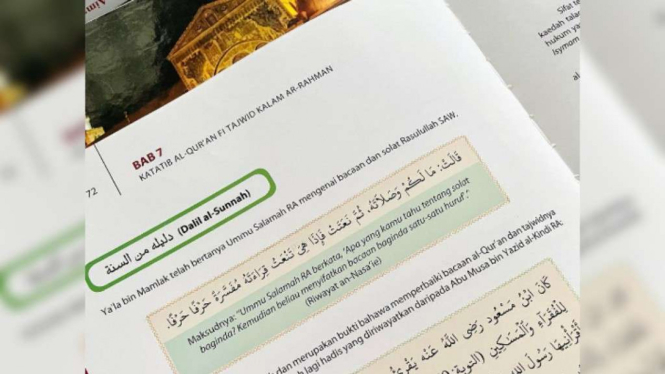 Sifat te
kaedah tala
hukum ya
Isymom
BAB 7
KATATIB AL-QUR'AN FI TAJWID KALAM AR-RAHMAN
72
دليله من السنة (Dalil al-Sunnah)
Ya'la bin Mamlak telah bertanya Ummu Salamah RA mengenai bacaan dan solat Rasulullah SAW.
قَالَتْ: مَا لَكُمْ وَصَلَاتَهُ. ثُمَّ نَعَتَتْ فَإِذَا هِيَ تَنْعَتُ قِرَاءَتَهُ مُفَسَّرَةً حَرْفًا حَرْفًا.
Maksudnya: "Ummu Salamah RA berkata, "Apa yang kamu tahu tentang solat
baginda? Kemudian beliau menyifatkan bacaan baginda satu-satu huruf"."
(Riwayat an-Nasa'ie)
dan merupakan bukti bahawa memperbaiki bacaan al-Qur'an dan tajwidnya
lagi hadis yang diriwayatkan daripada Abu Musa bin Yazid al-Kindi RA:
كَانَ ابْنُ مَسْعُودٍ رَضِيَ اللهُ عَنْهُ يُقْرِئُ
لِلْفُقَرَاءِ وَالْمَسَكِينِ (التوبة:
أَقْرَأَنِيهَا رَسُولُ اللهِ